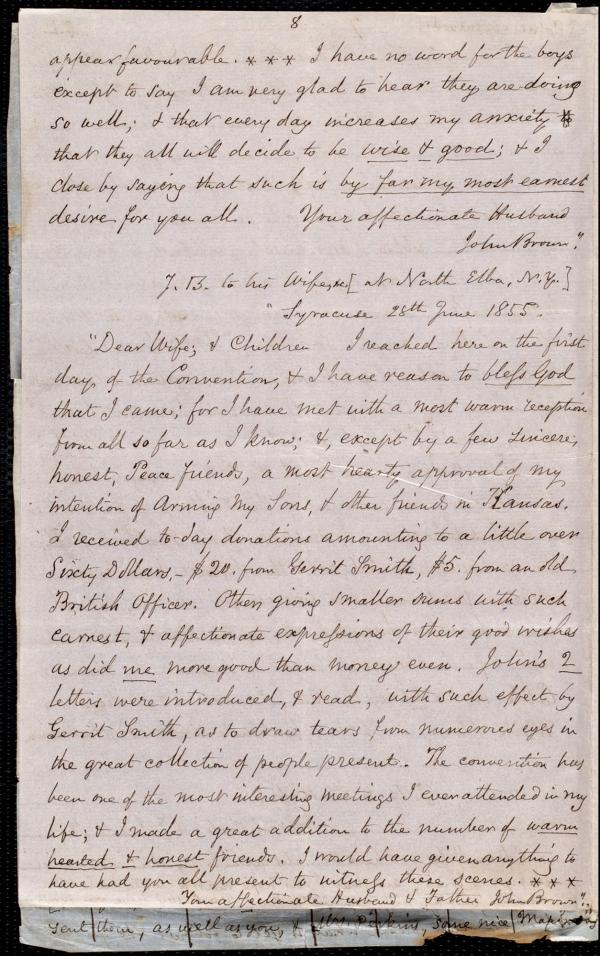 8
appear favourable. * * * I have no word for the boys
except to say I am very glad to hear they are doing
so well; & that every day increases my anxiety
that they all will decide to be wise & good; & I
close by saying that such is by far my most earnest
desire for you all. Your affectionate Husband
John Brown".
J. B. to his Wife, &c [at North Elba, N.Y.]
"Syracuse 28th June 1855.
"Dear Wife; & Children I reached here on the first
day of the Convention, & I have reason to bless God
that I came; for I have met with a most warm reception
from all so far as I know; &, except by a few sincere,
honest, Peace friends, a most hearty approval of my
intention of Arming my Sons, & other friends in Kansas.
I received to-day donations amounting to a little over
Sixty Dollars,- $20. from Gerrit Smith, $5. from an old
British Officer. Others giving smaller sums with such
earnest, & affectionate expressions of their good wishes
as did me more good than money even. John's 2
letters were introduced, & read, with such effect by
Gerrit Smith, as to draw tears from numerous eyes in
the great collection of people present. The convention has
been one of the most interesting meetings I ever attended in my
life; & I made a great addition to the number of warm
hearted, & honest friends. I would have given anything to
have had you all present to witness these scenes. * * *
Your affectionate Husband & Father John Brown".
sent them, as well as you, & Mrs Perkins, some nice